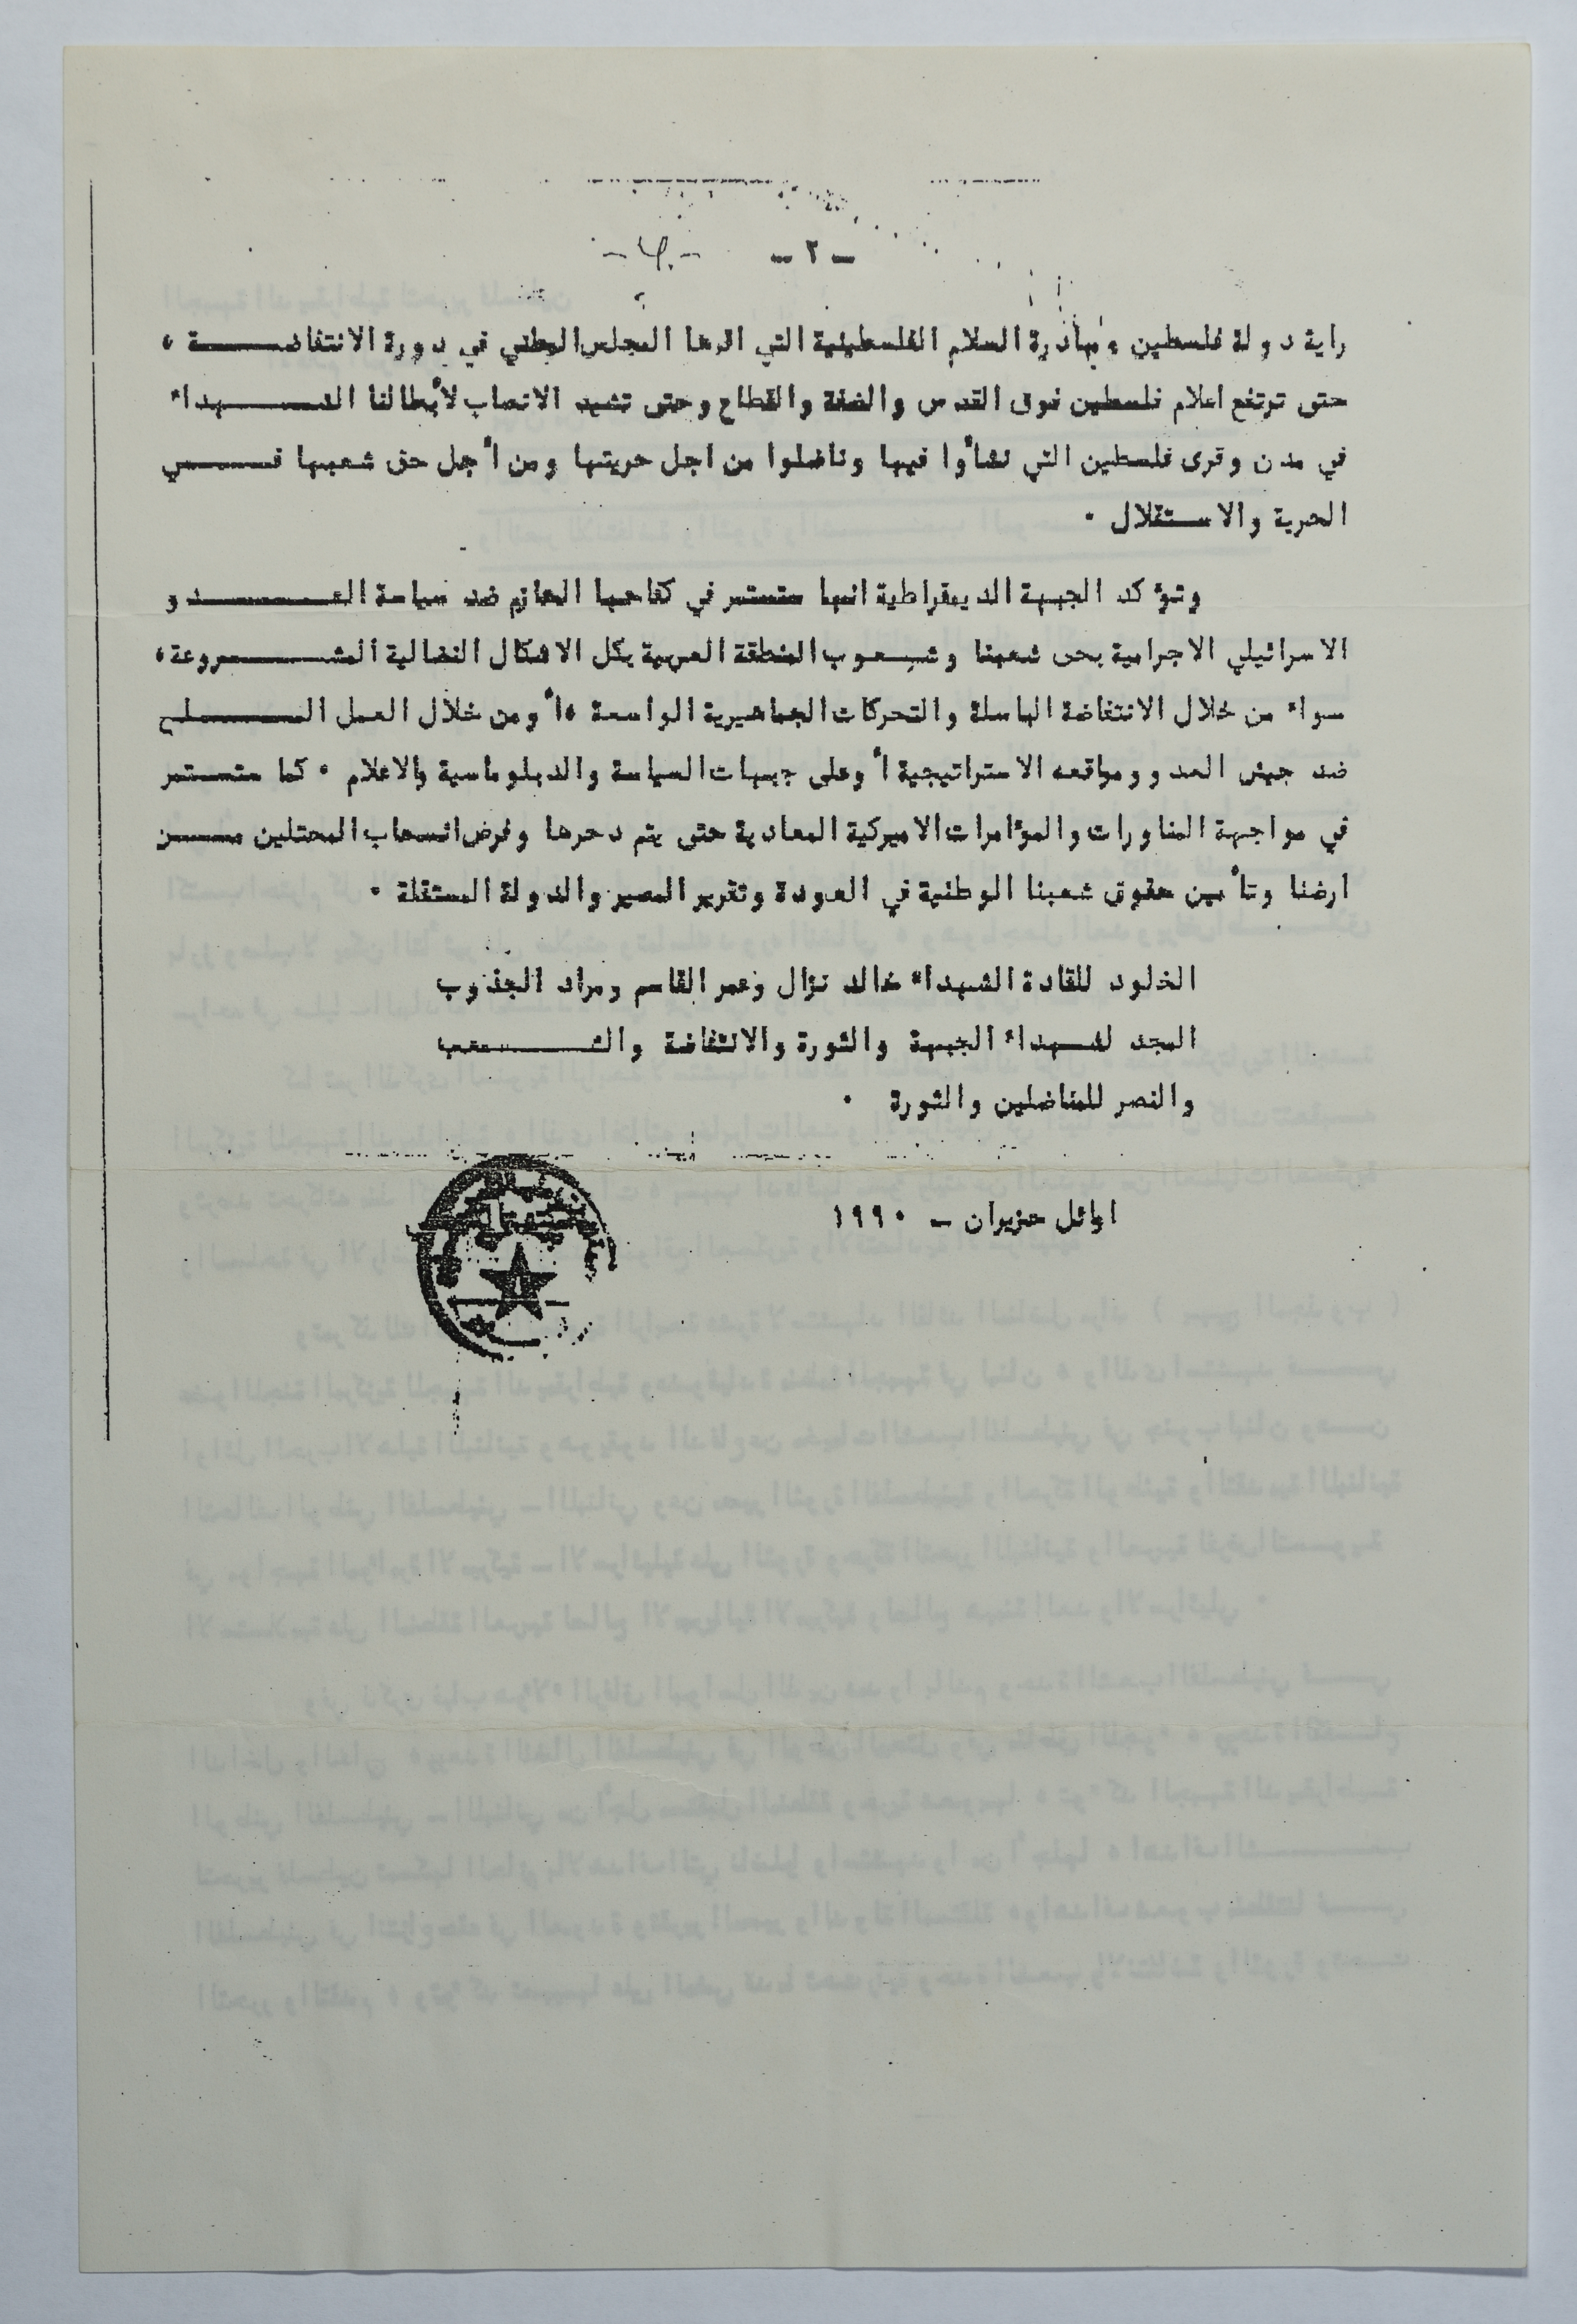 - ٢ -
راية دولة فلسطين ومبادرة السلام الفلسطينية التي اقرها المجلس الوطني في دورة الانتفاضـــــة ،
حتى ترتفع اعلام فلسطين فوق القدس والضفة والقطاع وحتى تشيد الانصاب لأبطالنا الشـــــهداء
في مدن وقرى فلسطين التي نشأوا فيها وناضلوا من اجل حريتها ومن أجل حق شعبها فـــــي
الحرية والاستقلال .
وتؤكد الجبهة الديمقراطية انها ستستمر في كفاحها الحازم ضد سياسة العـــــدو
الاسرائيلي الاجرامية بحق شعبنا وشـعوب المنطقة العربية بكل الاشكال النضالية المشـــــروعة ،
سواء من خلال الانتفاضة الباسلة والتحركات الجماهيرية الواسعة ، أو من خلال العمل المـــــسلح
ضد جيش العدو ومواقعه الاستراتيجية أو على جبهات السياسة والدبلوماسية والاعلام . كما ستستمر
في مواجهة المناورات والمؤامرات الاميركية المعادية حتى يتم دحرها وفرض انسحاب المحتلين مـــن
ارضنا وتأمين حقوق شعبنا الوطنية في العودة وتقرير المصير والدولة المستقلة .
الخلود للقادة الشهداء خالد نزال وعمر القاسم ومراد الجذوب
المجد لشـهداء الجبهة والثورة والانتفاضة والشـــــعب
والنصر للمناضلين والثورة .
اوائل حزيران - ١٩٩٠